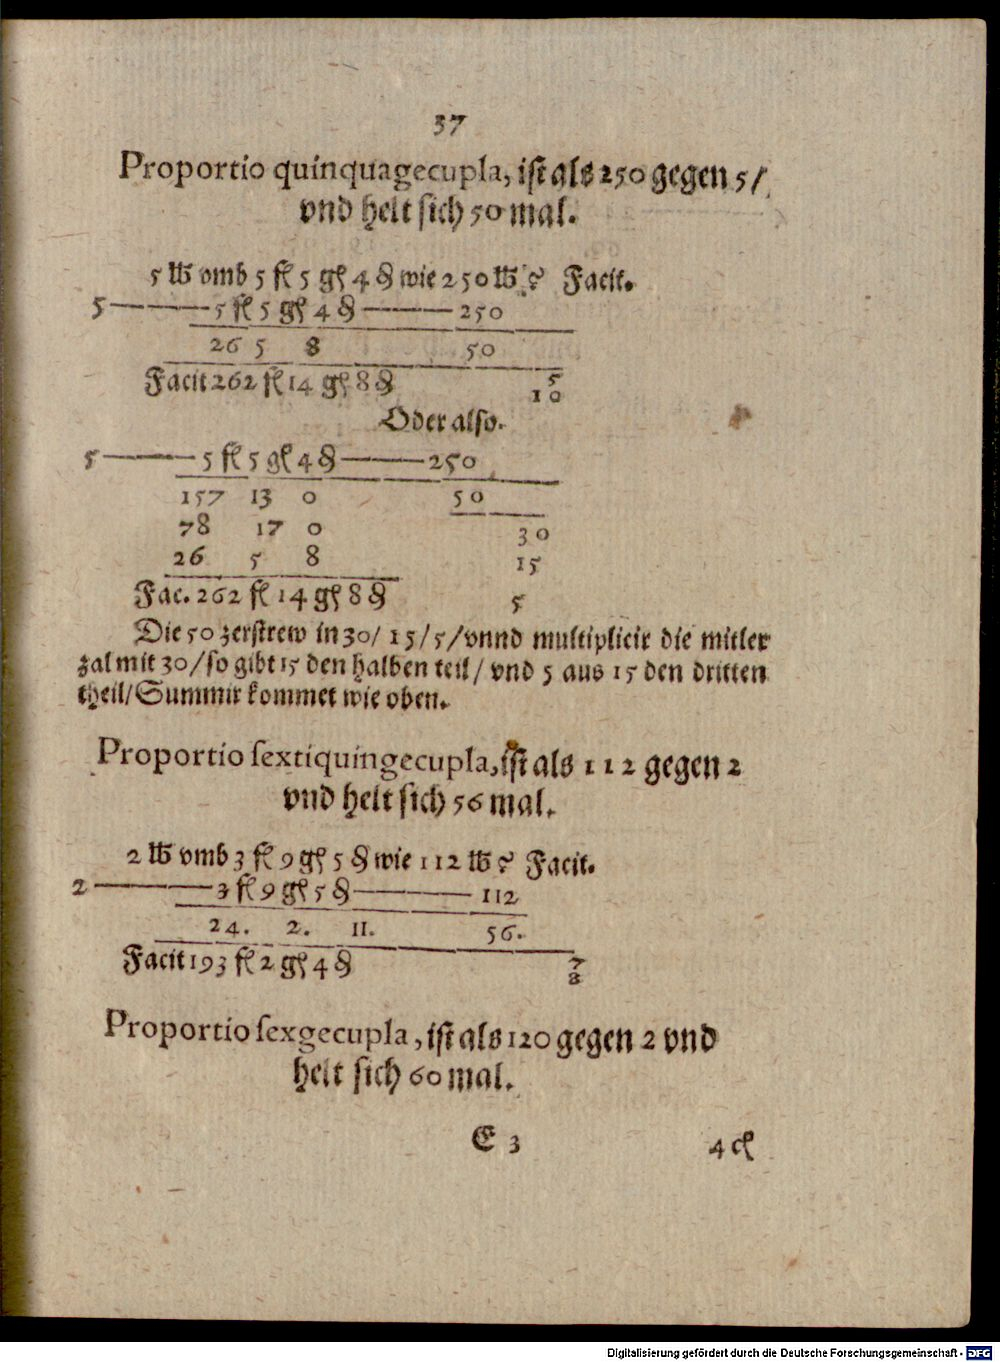 37
Proportio quinquagecupla, ist als 250 gegen 5/
vnd helt sich 50 mal.
5 ℔ vmb 5 fl 5 gl 4 ₰ wie 250 ℔? Facit.
5 ——— 5 fl 5 gl 4 ₰ ——— 250
26 5 8 50
Facit 262 fl 14 gl 8 ₰ 5
10
Oder also.
5 ——— 5 fl 5 gl 4 ₰ ——— 250
157 13 0 50
78 17 0 30
26 5 8 15
Fac. 262 fl 14 gl 8 ₰ 5
Die 50 zerstrew in 30/ 15/ 5/ vnnd multiplicir die mitler
zal mit 30/ so gibt 15 den halben teil/ vnd 5 aus 15 den dritten
theil/ Summir kommet wie oben.
Proportio sextiquingecupla, ist als 112 gegen 2
vnd helt sich 56 mal.
2 ℔ vmb 3 fl 9 gl 5 ₰ wie 112 ℔? Facit.
2 ——— 3 fl 9 gl 5 ₰ ——— 112
24. 2. 11. 56.
Facit 193 fl 2 gl 4 ₰ 7
8
Proportio sexgecupla, ist als 120 gegen 2 vnd
helt sich 60 mal.
E 3 4
Digitalisierung gefördert durch die Deutsche Forschungsgemeinschaft - DFG